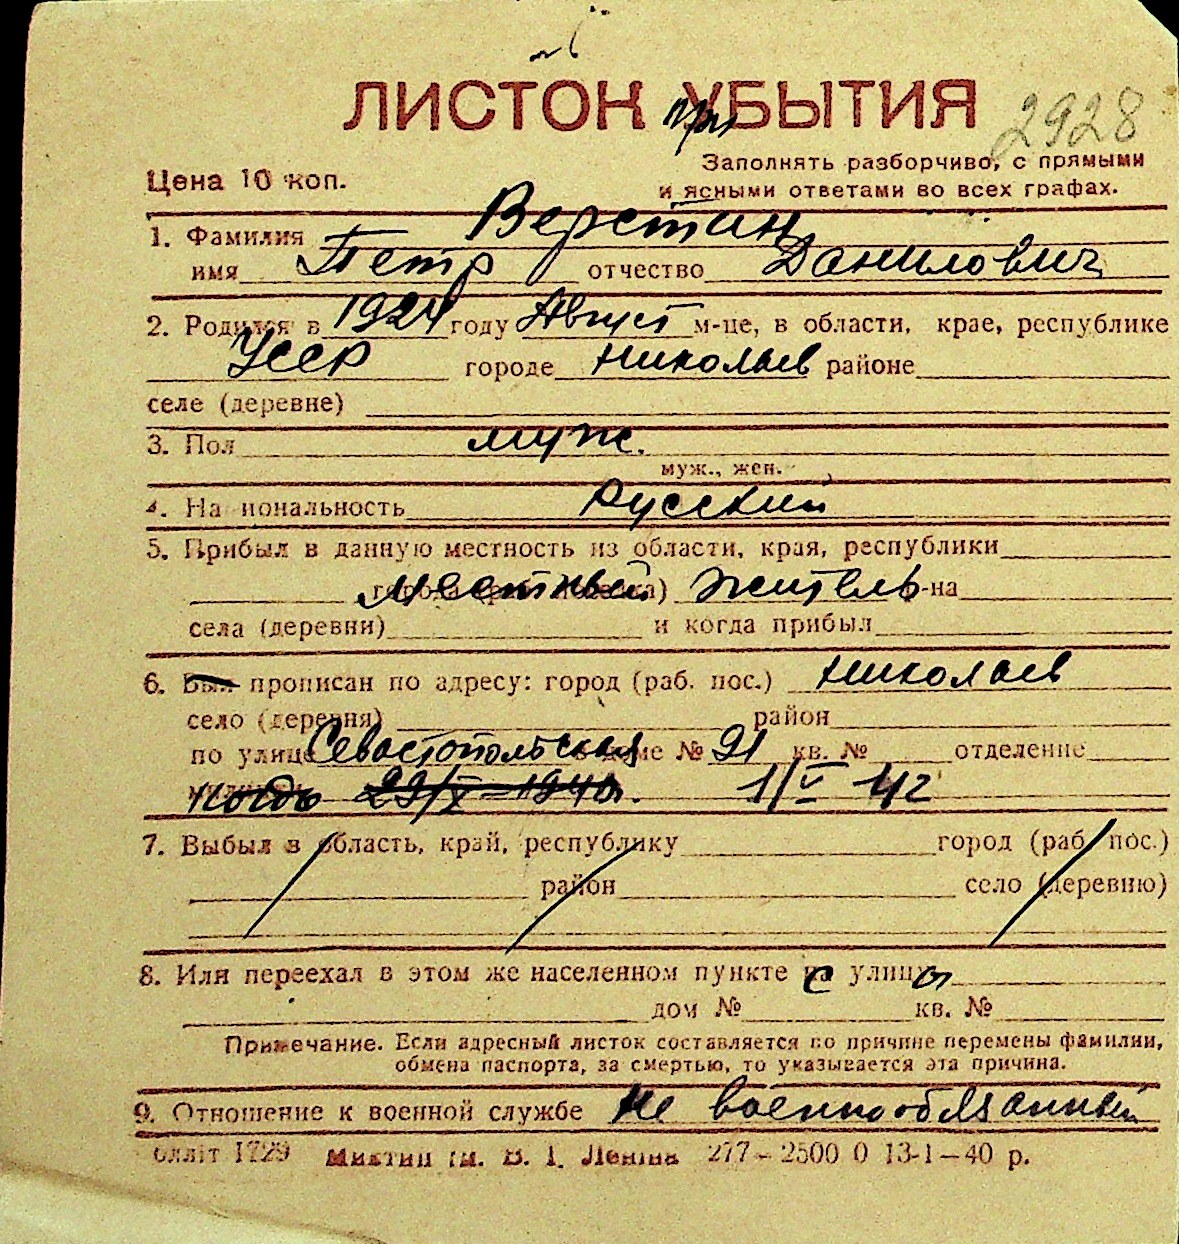 ЛИСТОК УБЫТИЯ
При
2928
Цена 10 коп.
Заполнять разборчиво, с прямыми
и ясными ответами во всех графах.
1. Фамилия Верстин
имя Петр отчество Данилович
2. Родился в 1924 году Август м-це, в области, крае, республике
УССР городе Николаев районе
селе (деревне)
3. Пол муж.
муж., жен.
4. Национальность Русский
5. Прибыл в данную местность из области, края, республики
местный житель -на
села (деревни) и когда прибыл
6. Был прописан по адресу: город (раб. пос.) Николаев
село (деревня) район
по улице Севастопольская в доме № 21 кв. № отделение
1/V 42
7. Выбыл в область, край, республику город (раб. пос.)
район село (деревню)
8. Или переехал в этом же населенном пункте с улицы
дом № кв. №
Примечание. Если адресный листок составляется по причине перемены фамилии,
обмена паспорта, за смертью, то указывается эта причина.
9. Отношение к военной службе Не военнообязанный
олліт 1729 ім. В. І. Леніна 277-2500 0 13-1-40 р.